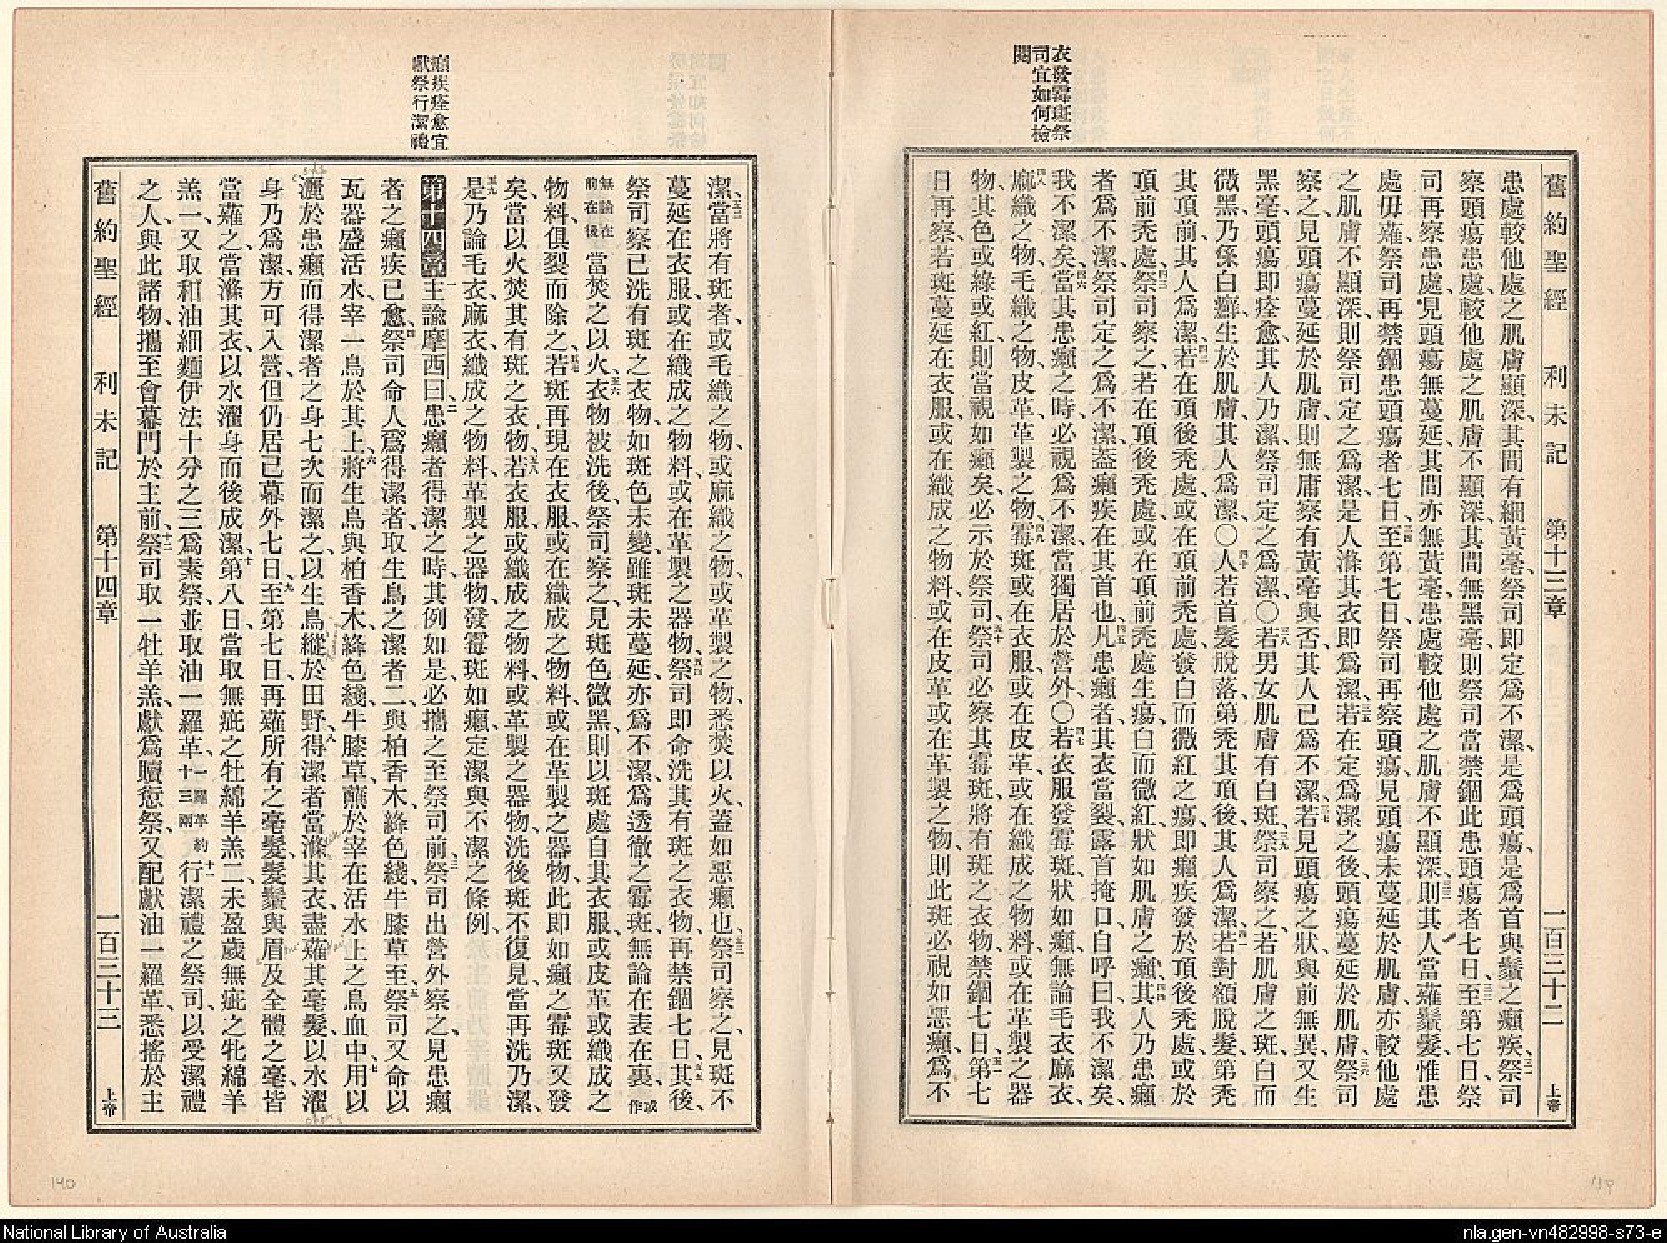 衣發霉斑祭
司宜如何檢
閱
舊約聖經 利未記 第十三章 一百三十二 上帝
患處較他處之肌膚顯深、其間有細黃毫、祭司卽定爲不潔、是爲頭瘍、是爲首與鬚之癩疾、三一祭司
察頭瘍患處、較他處之肌膚不顯深、其間無黑毫、則祭司當禁錮此患頭瘍者七日、三二至第七日、祭
司再察患處、見頭瘍無蔓延、其間亦無黃毫、患處較他處之肌膚不顯深、三三則其人當薙鬚髮、惟患
處毋薙、祭司再禁錮患頭瘍者七日、三四至第七日、祭司再察頭瘍、見頭瘍未蔓延於肌膚、亦較他處
之肌膚不顯深、則祭司定之爲潔、是人滌其衣卽爲潔、三五若在定爲潔之後、頭瘍蔓延於肌膚、三六祭司
察之、見頭瘍蔓延於肌膚、則無庸察有黃毫與否、其人已爲不潔、三七若見頭瘍之狀、與前無異、又生
黑毫、頭瘍卽痊愈、其人乃潔、祭司定之爲潔〇三八若男女肌膚有白斑、三九祭司察之、若肌膚之斑、白而
微黑、乃係白癬、生於肌膚、其人爲潔〇四十人若首髮脫落、第禿其頂後、其人爲潔、四一若對額脫髮、第禿
其頂前、其人爲潔、四二若在頂後禿處、或在頂前禿處、發白而微紅之瘍、卽癩疾發於頂後禿處、或於
頂前禿處、四三祭司察之、若在頂後禿處、或在頂前禿處生瘍、白而微紅、狀如肌膚之癩、四四其人乃患癩
者、爲不潔、祭司定之爲不潔、葢癩疾在其首也、四五凡患癩者、其衣當裂、露首掩口、自呼曰、我不潔矣、
我不潔矣、四六當其患癩之時、必視爲不潔、當獨居於營外〇四七若衣服發霉斑、狀如癩、無論毛衣麻衣、
四八麻織之物、毛織之物、皮革、革製之物、四九霉斑或在衣服、或在皮革、或在織成之物料、或在革製之器
物、其色或綠或紅、則當視如癩矣、必示於祭司、五十祭司必察其霉斑、將有斑之衣物、禁錮七日、五一第七
日再察、若斑蔓延在衣服、或在織成之物料、或在皮革、或在革製之物、則此斑必視如惡癩、爲不
癩疾痊愈宜
獻祭行潔禮
潔、五二當將有斑者、或毛織之物、或麻織之物、或革製之物、悉焚以火、蓋如惡癩也、五三祭司察之、見斑不
蔓延在衣服、或在織成之物料、或在革製之器物、五四祭司卽命洗其有斑之衣物、再禁錮七日、五五其後、
祭司察已洗有斑之衣物、如斑色未變、雖斑未蔓延、亦爲不潔、爲透徹之霉斑、無論在表在裏、或作
無論在前在後當焚之以火、五六衣物被洗後、祭司察之、見斑色微黑、則以斑處自其衣服、或皮革、或織成之
物料、俱裂而除之、五七若斑再現在衣服、或在織成之物料、或在革製之器物、此卽如癩之霉斑又發
矣、當以火焚其有斑之衣物、五八若衣服、或織成之物料、或革製之器物、洗後斑不復見、當再洗乃潔、
五九是乃論毛衣麻衣、織成之物料、革製之器物、發霉斑如癩、定潔與不潔之條例、
第十四章一主諭摩西曰、二患癩者得潔之時、其例如是、必攜之至祭司前、三祭司出營外察之、見患癩
者之癩疾已愈、四祭司命人爲得潔者、取生鳥之潔者二、與柏香木、絳色綫、牛膝草至、五祭司又命以
瓦器盛活水、宰一鳥於其上、六將生鳥與柏香木、絳色綫、牛膝草、蘸於宰在活水上之鳥血中、七用以
灑於患癩而得潔者之身七次而潔之、以生鳥縱於田野、八得潔者當滌其衣、盡薙其毫髮、以水濯
身、乃爲潔、方可入營、但仍居己幕外七日、九至第七日、再薙所有之毫髮、髮鬚與眉、及全體之毫、皆
當薙之、當滌其衣、以水濯身、而後成潔、十第八日、當取無疵之牡綿羊羔二、未盈歲無疵之牝綿羊
羔一、又取和油細麵伊法十分之三爲素祭、並取油一羅革、一羅革約十三兩十一行潔禮之祭司、以受潔禮
之人、與此諸物、攜至會幕門、於主前、十二祭司取一牡羊羔、獻爲贖愆祭、又配獻油一羅革、悉搖於主
舊約聖經 利未記 第十四章 一百三十三 上帝
140
139
National Library of Australia
nla.gen-vn482998-s73-e